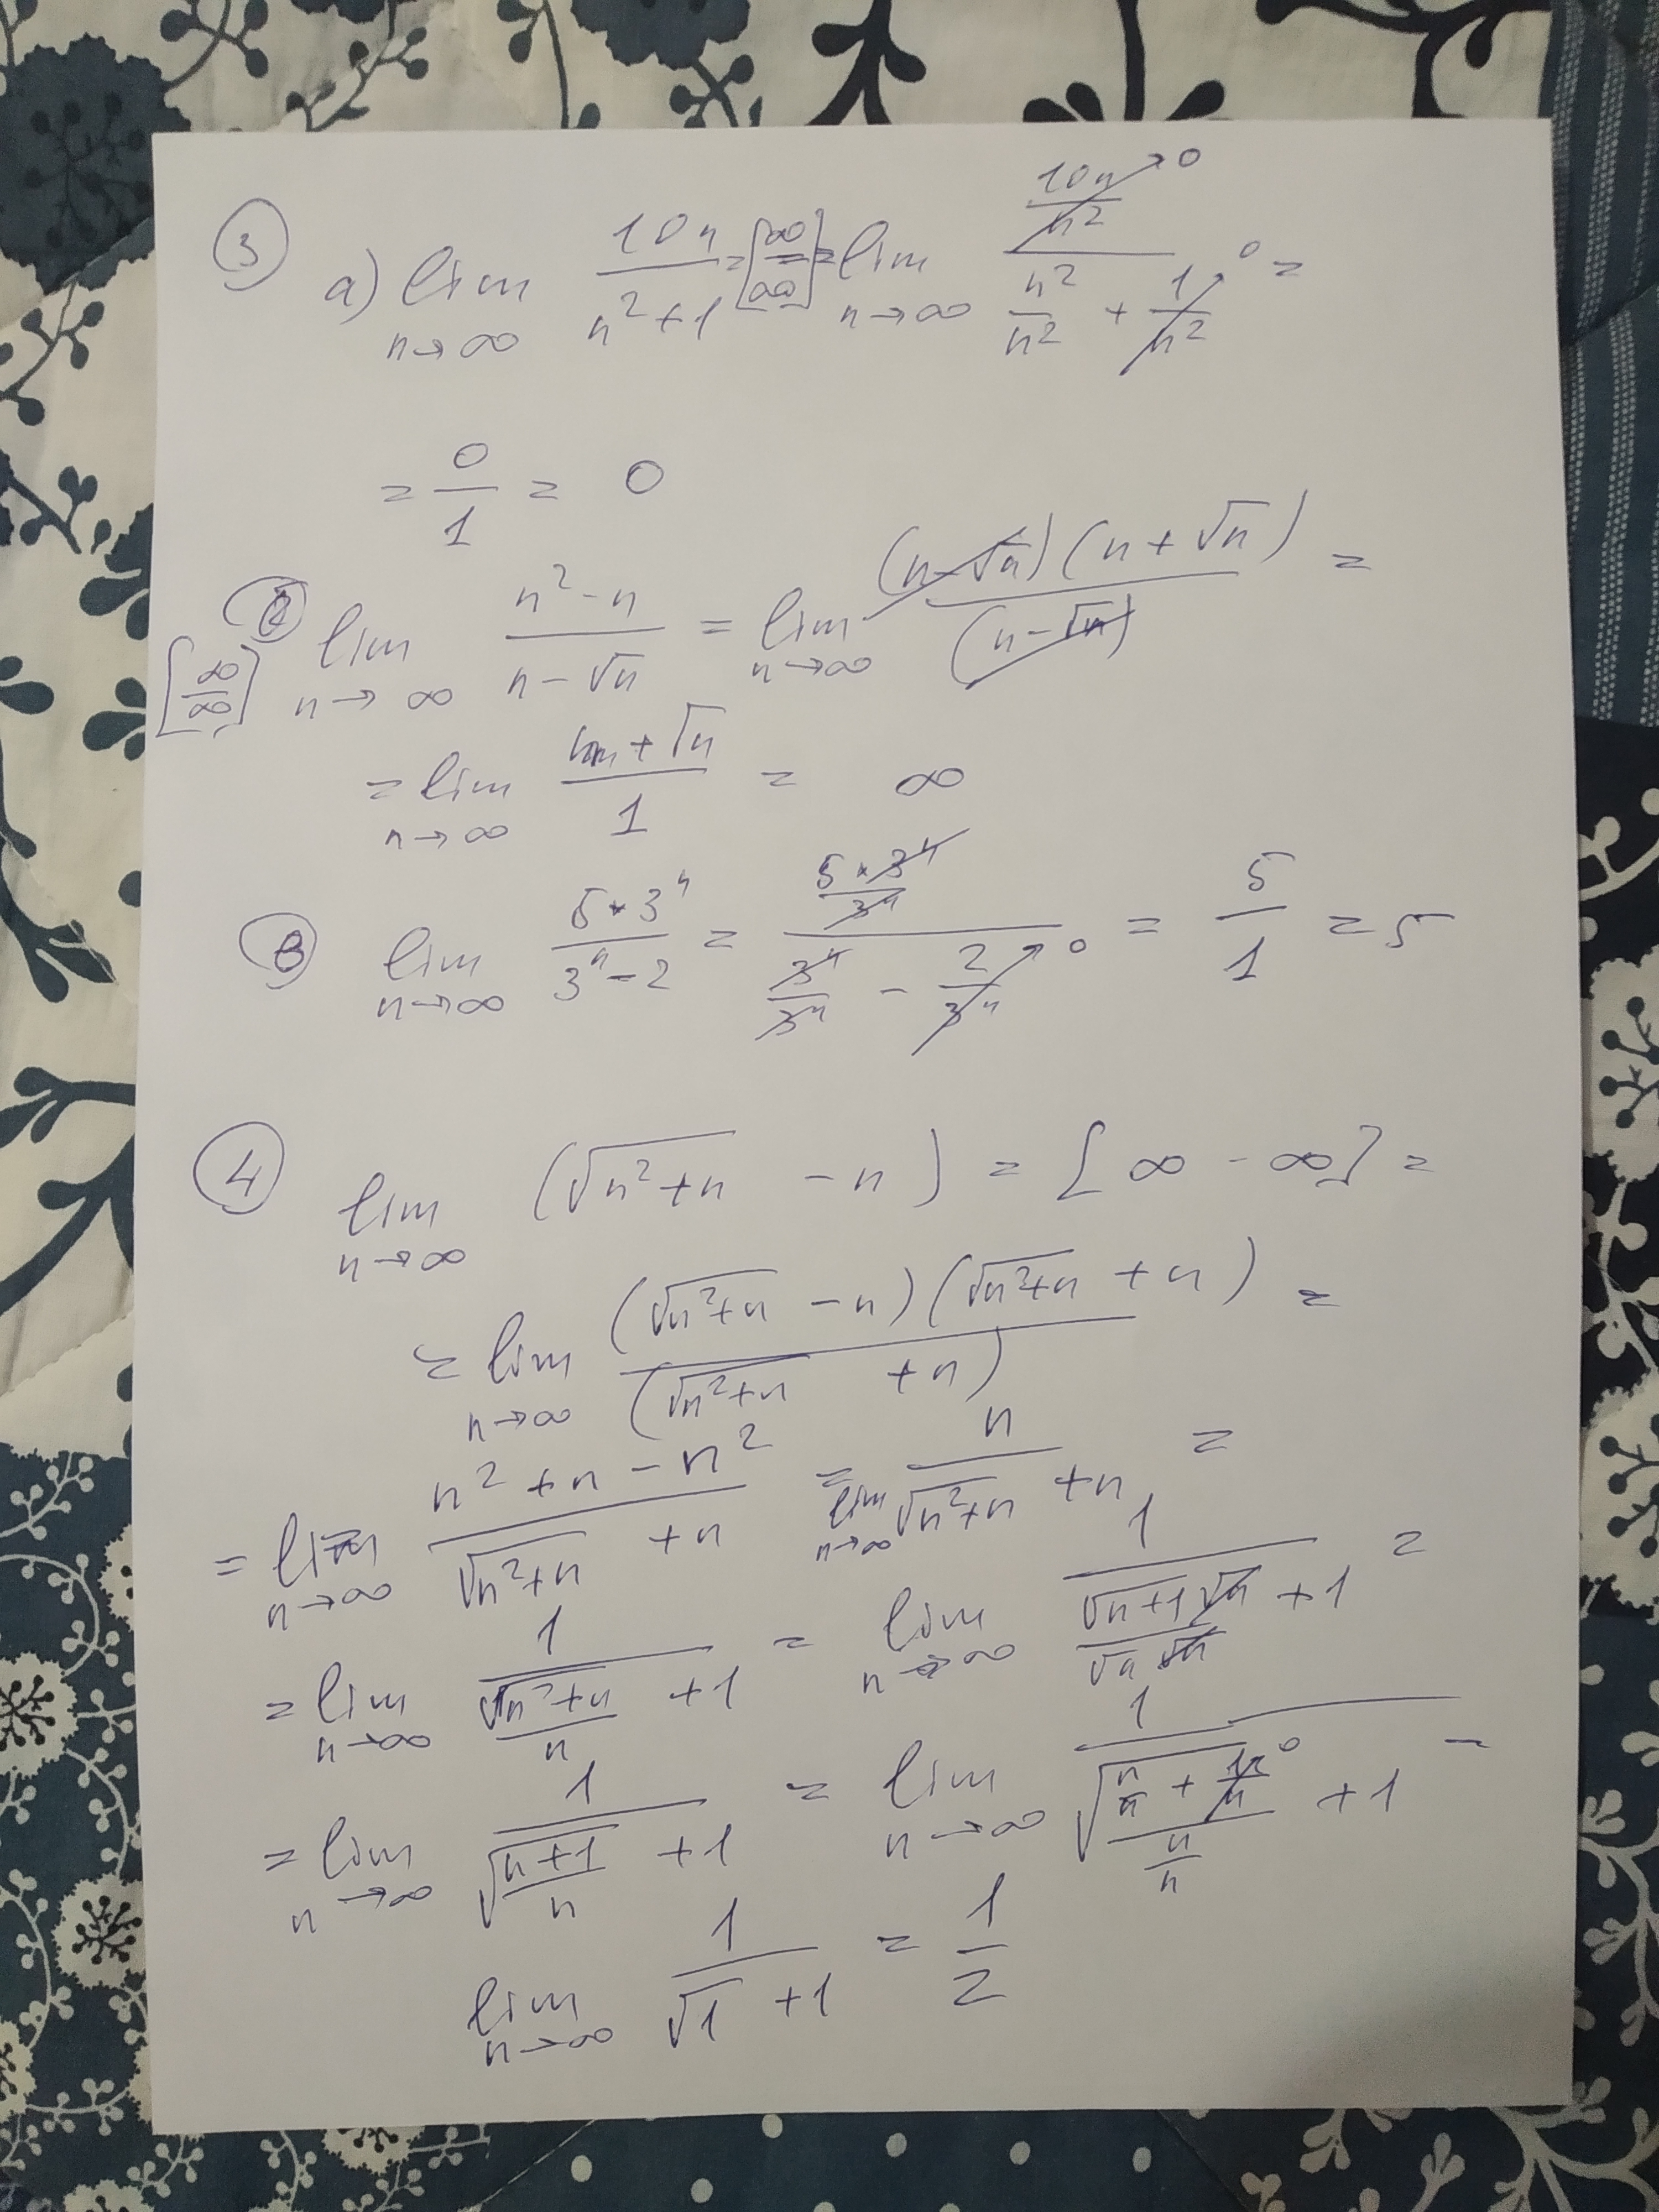 ③ a) lim n→∞ 10n/(n²+1) = [∞/∞] = lim n→∞ (10n/n²)→0 / (n²/n² + 1/n²→0) =
= 0/1 = 0
[∞/∞] lim n→∞ (n²-n)/(n-√n) = lim n→∞ (n-√n)(n+√n)/(n-√n) =
= lim n→∞ (n+√n)/1 = ∞
в) lim n→∞ 5*3ⁿ/(3ⁿ-2) = (5*3ⁿ/3ⁿ)/(3ⁿ/3ⁿ - 2/3ⁿ→0) = 5/1 = 5
④ lim n→∞ (√(n²+n) - n) = [∞ - ∞] =
= lim n→∞ (√(n²+n) - n)(√(n²+n) + n)/(√(n²+n) + n) =
= lim n→∞ (n²+n-n²)/(√(n²+n) + n) = lim n→∞ n/(√(n²+n) + n) =
= lim n→∞ 1/(√(n²+n)/n + 1) = lim n→∞ 1/(√(n+1)√n/(√n√n) + 1) =
= lim n→∞ 1/(√((n+1)/n) + 1) = lim n→∞ 1/(√((n/n + 1/n→0)/(n/n)) + 1) =
lim n→∞ 1/(√1 + 1) = 1/2